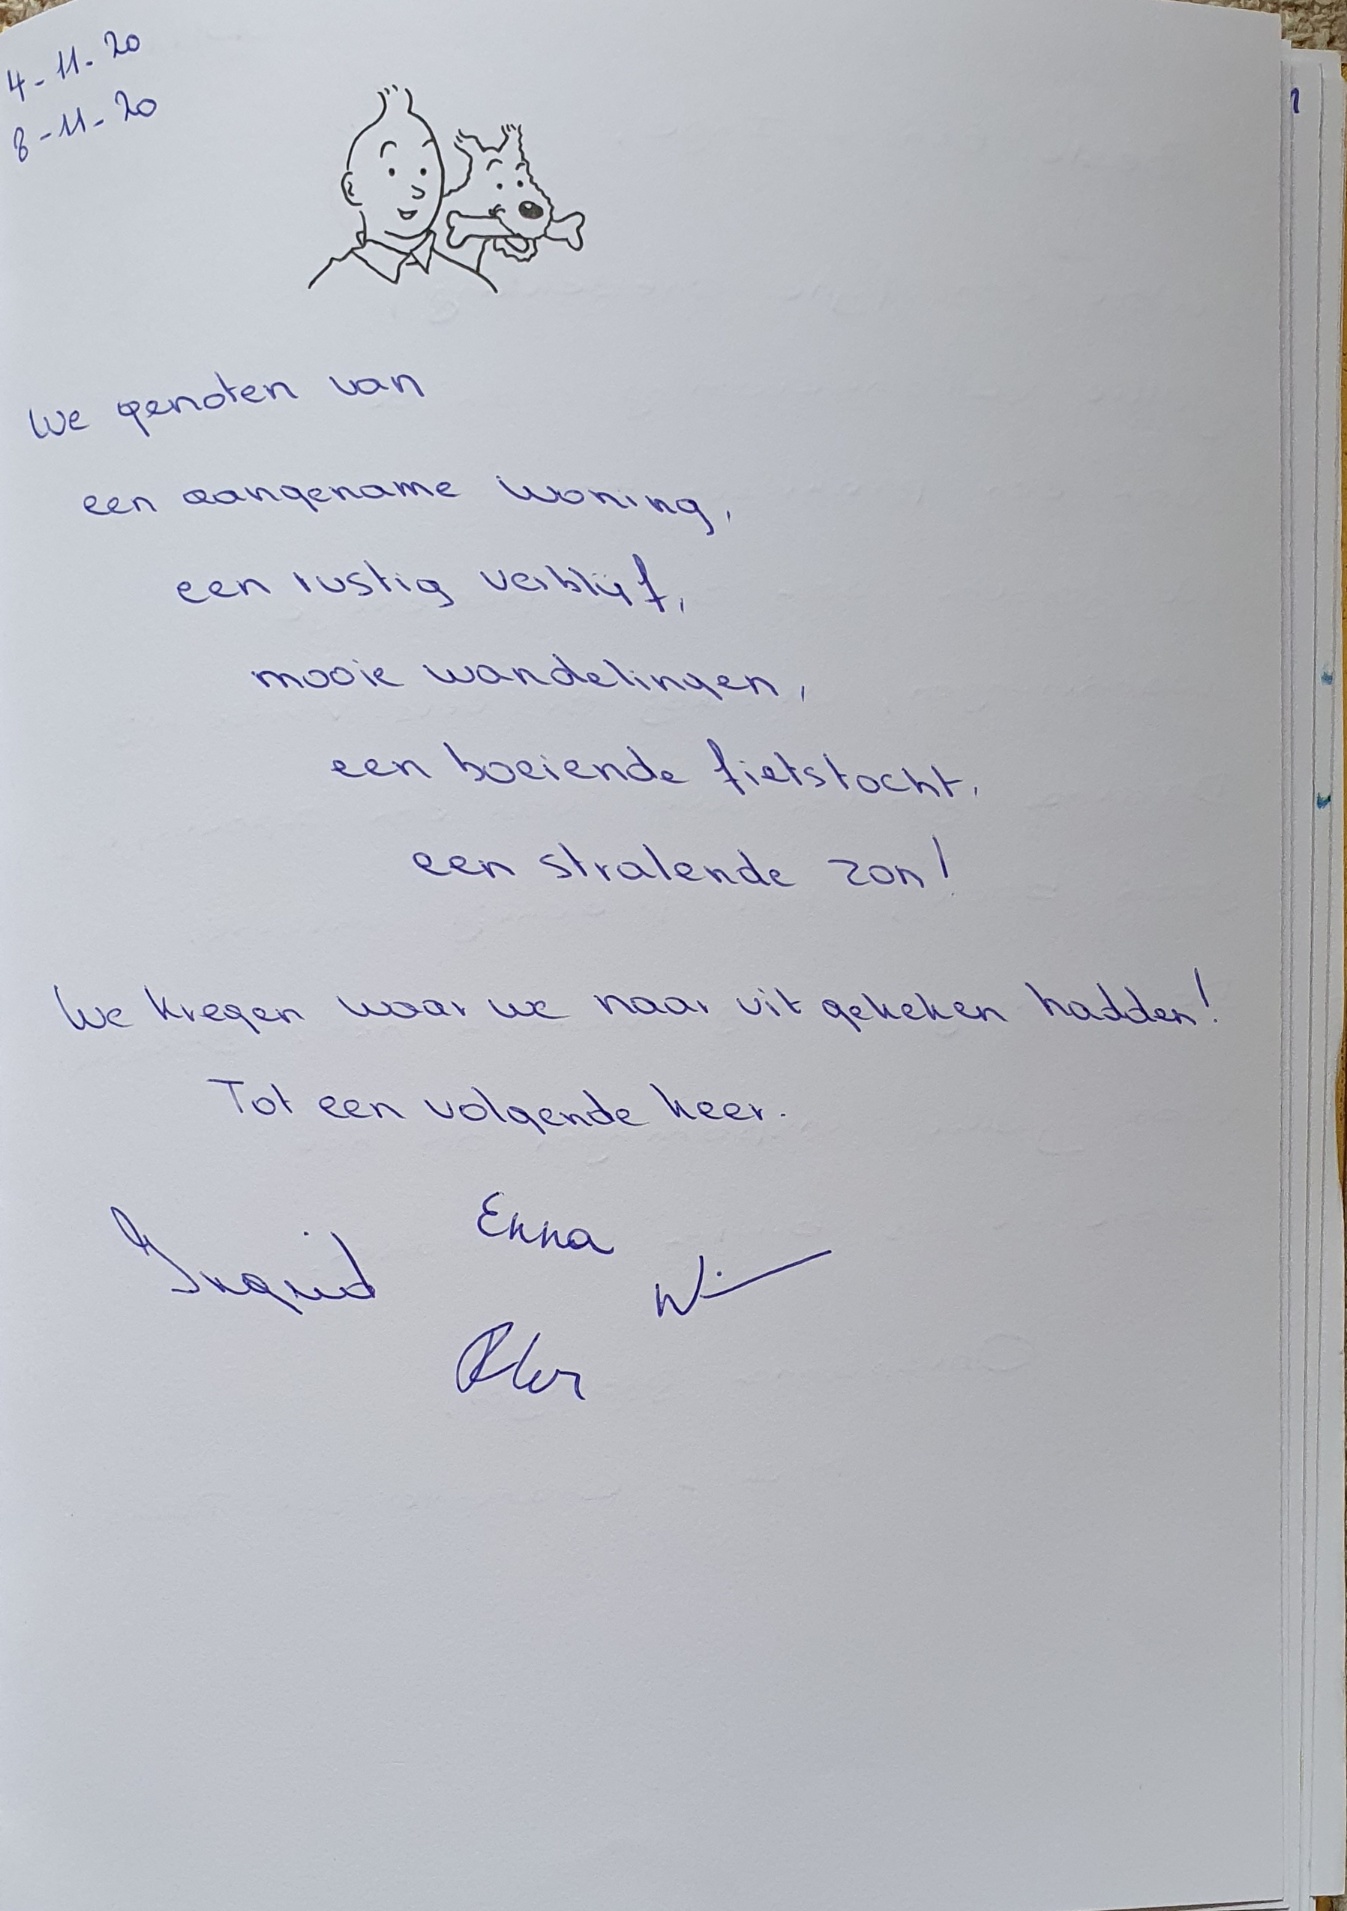 4-11-20
8-11-20
We genoten van
een aangename woning,
een rustig verblijf,
mooie wandelingen,
een boeiende fietstocht,
een stralende zon!
We kregen waar we naar uit gekeken hadden!
Tot een volgende keer.
Enna
Ingrid